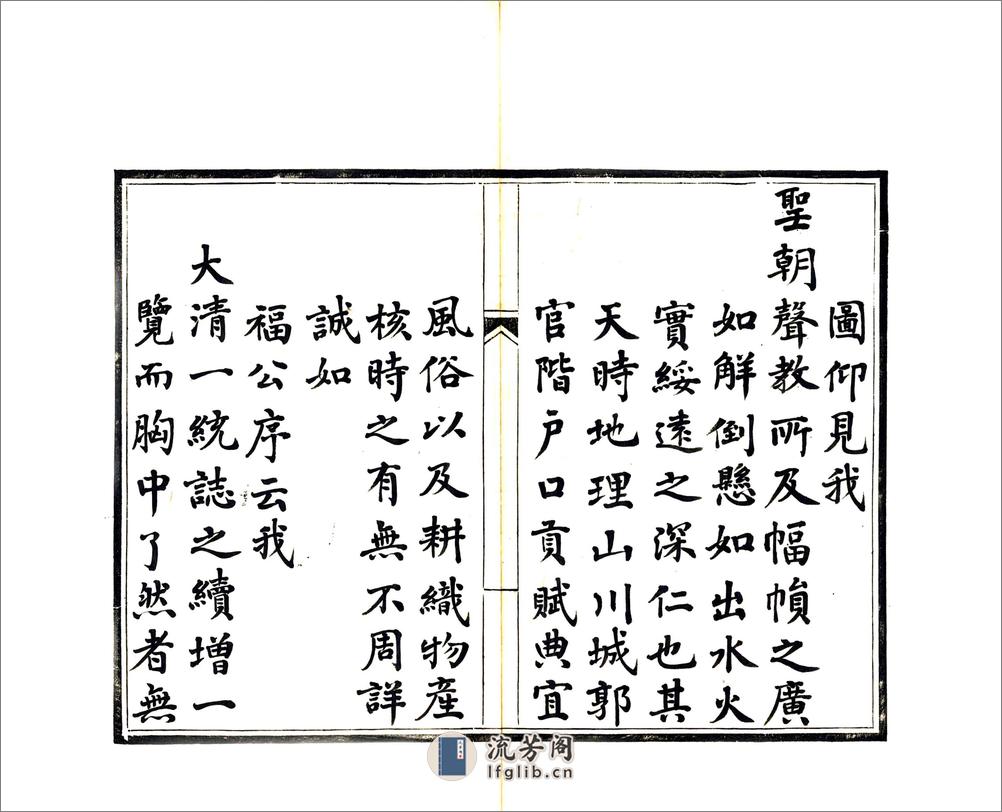 圖仰見我
聖朝聲教所及幅幀之廣
如解倒懸如出水火
實綏遠之深仁也其
天時地理山川城郭
官階户口貢賦典宜
風俗以及耕織物產
核時之有無不周詳
誠如
福公序云我
大清一統誌之續增一
覽而胸中了然者無
流芳阁
lfglib.cn